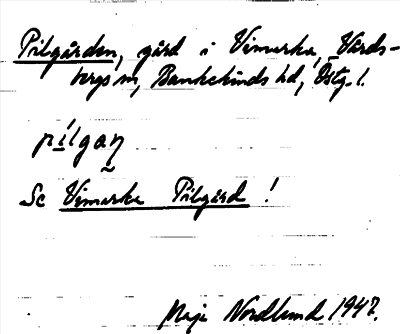 Pilgården, gård i Vimarka, Vårds-
bergs sn, Bankekinds hd, Östg. l.
pílgaη
Se Vimarka Pilgård !
Maja Nordlund 1947.